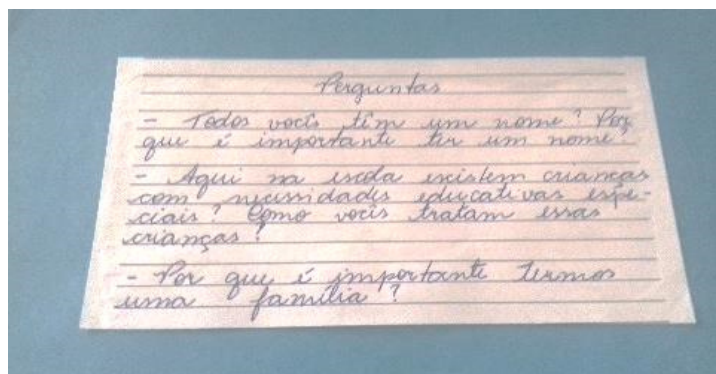 Perguntas
- Todos vocês têm um nome? Por
que é importante ter um nome?
- Aqui na escola existem crianças
com necessidades educativas espe-
ciais? Como vocês tratam essas
crianças?
- Por que é importante termos
uma família?